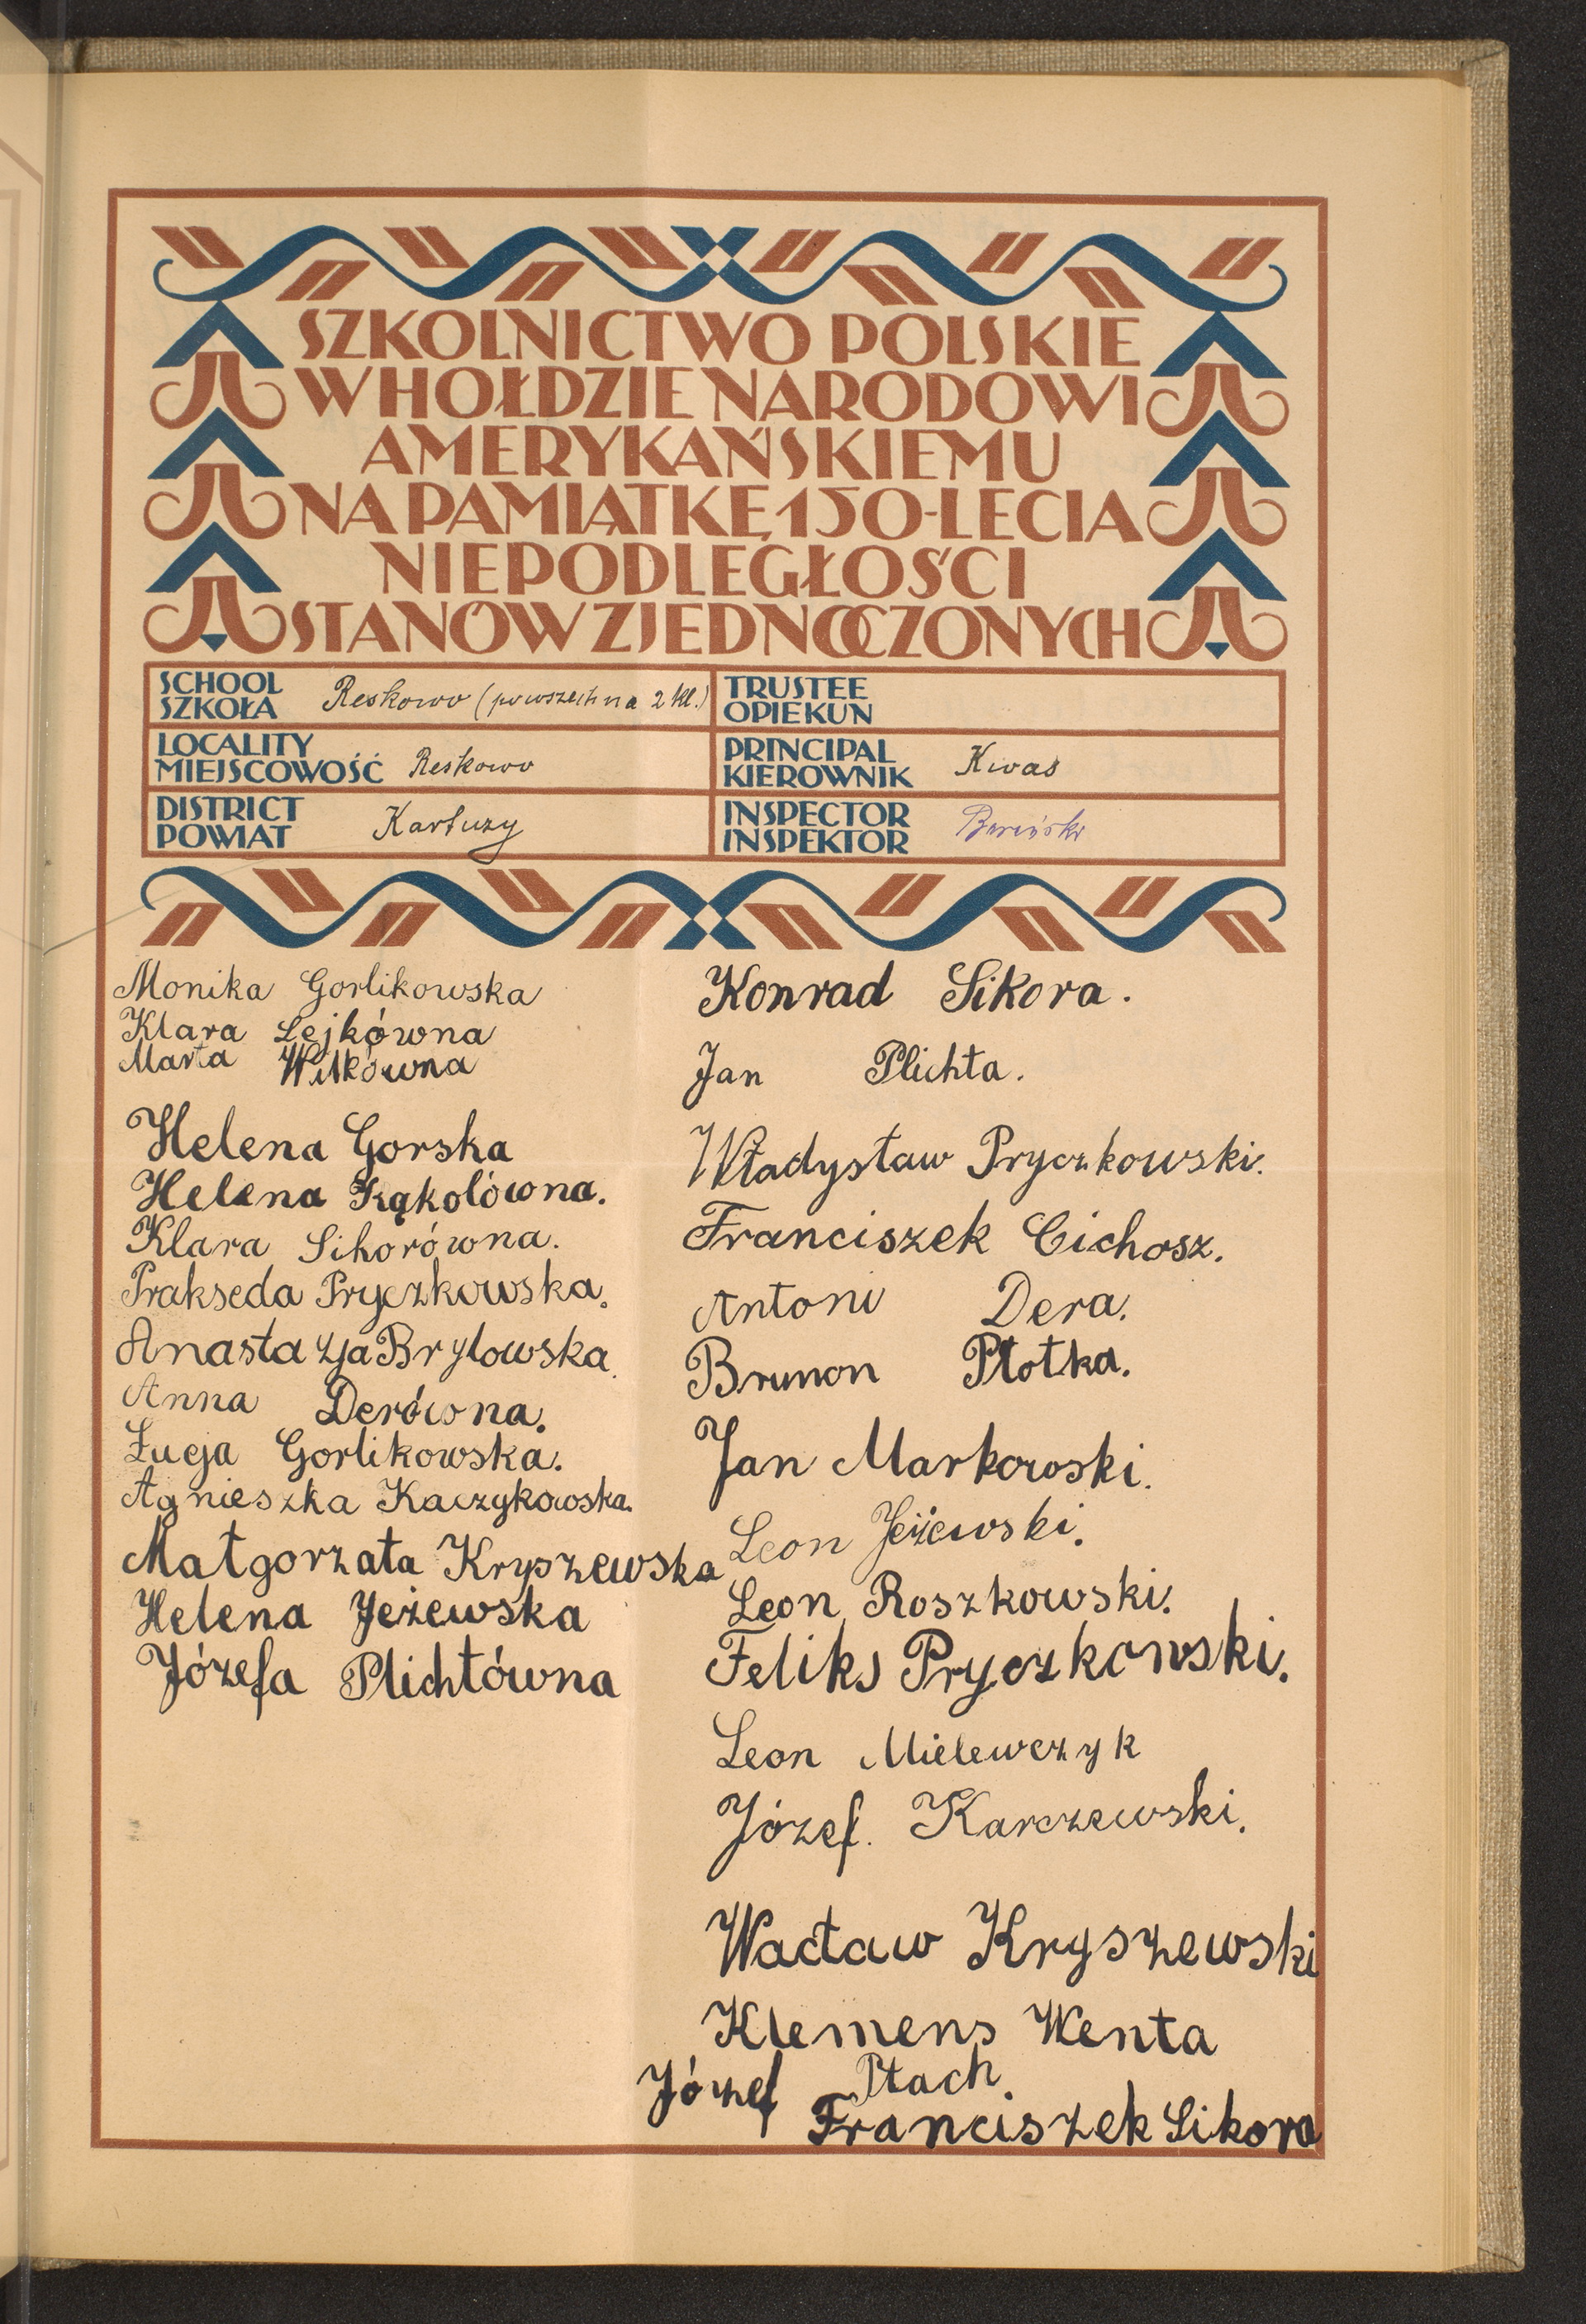 SZKOLNICTWO POLSKIE
W HOŁDZIE NARODOWI
AMERYKAŃSKIEMU
NA PAMIĄTKĘ 150-LECIA
NIEPODLEGŁOŚCI
STANÓW ZJEDNOCZONYCH
SCHOOL
SZKOŁA
Reskowo (powszechna 2 kl.)
LOCALITY
MIEJSCOWOŚĆ
Reskowo
DISTRICT
POWIAT
Kartuzy
TRUSTEE
OPIEKUN
PRINCIPAL
KIEROWNIK
Kwas
INSPECTOR
INSPEKTOR
Monika Gorlikowska
Klara Lejkówna
Marta Wilkówna
Helena Gorska
Helena Kąkolówna.
Klara Sikorówna.
Prakseda Pryczkowska.
Anastazja Bryłowska.
Anna Derówna.
Łucja Gorlikowska.
Agnieszka Kaczykowska.
Małgorzata Kryszewska
Helena Jeżewska
Józefa Plichtówna
Konrad Sikora.
Jan Plichta.
Władysław Pryczkowski.
Franciszek Cichosz.
Antoni Dera.
Brunon Płotka.
Jan Markowski.
Leon Jeżewski.
Leon Roszkowski.
Feliks Pryczkowski.
Leon Mielewczyk
Józef. Karczewski.
Wacław Kryszewski
Klemens Wenta
Józef Ptach.
Franciszek Sikora